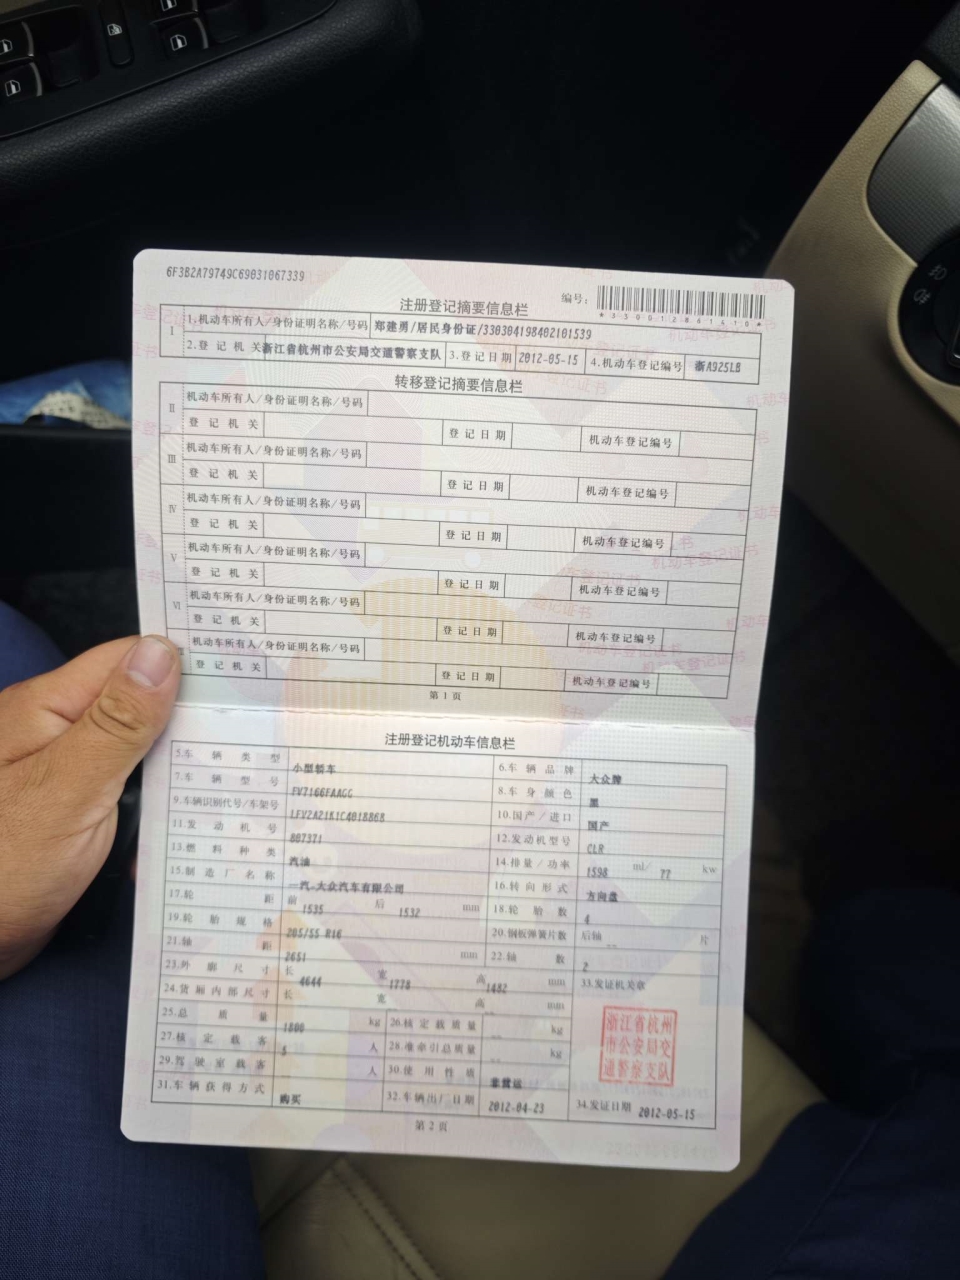 6F3B2A79749C69031067339
编号:
*330012841410*
注册登记摘要信息栏
I 1.机动车所有人/身份证明名称/号码 郑建勇/居民身份证/330304198402101539
2.登记机关 浙江省杭州市公安局交通警察支队 3.登记日期 2012-05-15 4.机动车登记编号 浙A925LB
转移登记摘要信息栏
II 机动车所有人/身份证明名称/号码
登记机关 登记日期 机动车登记编号
III 机动车所有人/身份证明名称/号码
登记机关 登记日期 机动车登记编号
IV 机动车所有人/身份证明名称/号码
登记机关 登记日期 机动车登记编号
V 机动车所有人/身份证明名称/号码
登记机关 登记日期 机动车登记编号
VI 机动车所有人/身份证明名称/号码
登记机关 登记日期 机动车登记编号
机动车所有人/身份证明名称/号码
登记机关 登记日期 机动车登记编号
第1页
注册登记机动车信息栏
5.车辆类型 小型轿车 6.车辆品牌 大众牌
7.车辆型号 FV7166FAAGG 8.车身颜色 黑
9.车辆识别代号/车架号 10.国产/进口 国产
11.发动机号 807371 12.发动机型号 CLR
13.燃料种类 汽油 14.排量/功率 1598 ml/ 77 kw
15.制造厂名称 一汽-大众汽车有限公司 16.转向形式 方向盘
17.轮距 前 1535 后 1532 mm 18.轮胎数 4
19.轮胎规格 205/55 R16 20.钢板弹簧片数 后轴 -- 片
21.轴距 2651 mm 22.轴数 2
23.外廓尺寸 长 4644 宽 1778 高 1482 mm 33.发证机关章
24.货厢内部尺寸 长 宽 -- 高 -- mm
25.总质量 1800 kg 26.核定载质量 -- kg
27.核定载客 5 人 28.准牵引总质量 -- kg
29.驾驶室载客 人 30.使用性质 非营运
31.车辆获得方式 购买 32.车辆出厂日期 2012-04-23 34.发证日期 2012-05-15
浙江省杭州
市公安局交
通警察支队
第2页